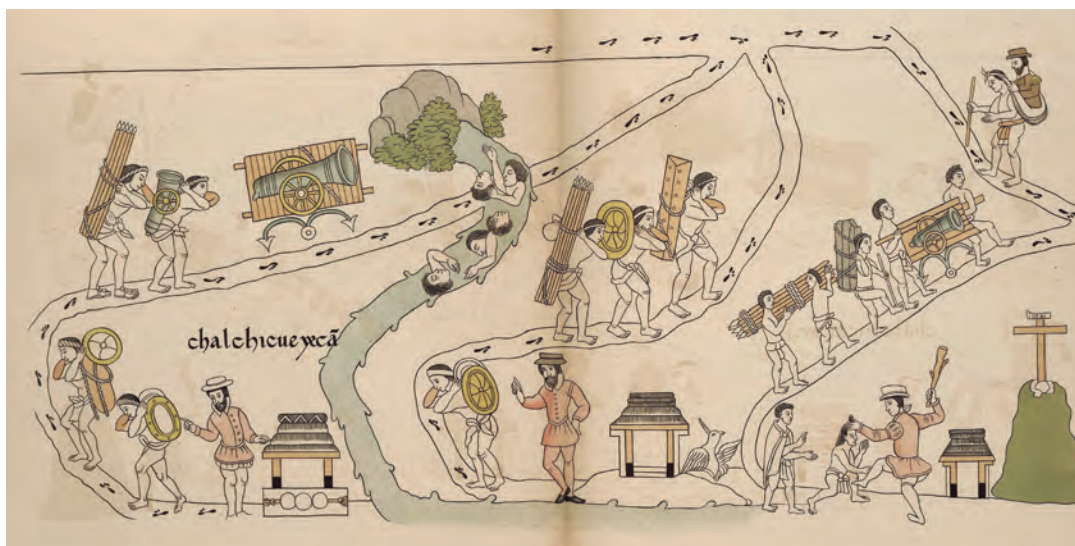 chalchicueyecã